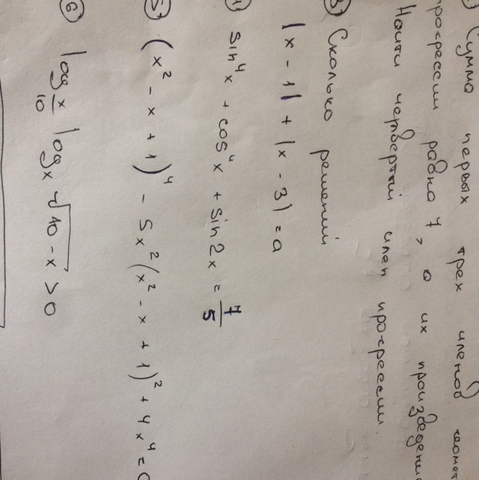 Сумма первых трех членов
прогрессии равна 7, а их
Найти четвертый член прогрессии.
3) Сколько решений
|x - 1| + |x - 3| = a
sin⁴x + cos⁴x + sin2x = 7/5
5) (x² - x + 1)⁴ - 5x²(x² - x + 1)² + 4x⁴ = 0
6) log_{x/10} log_x √(40 - x) > 0